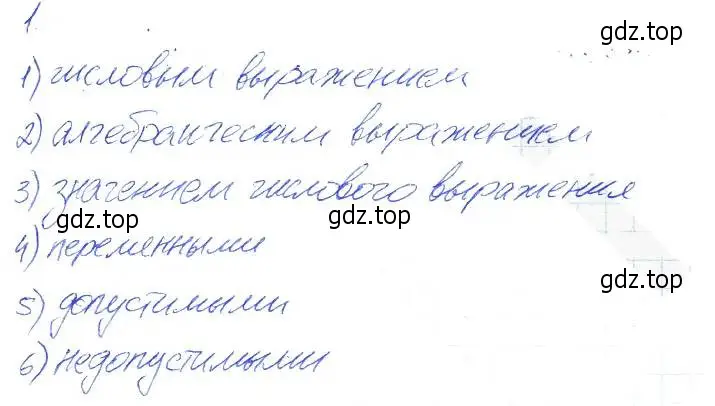 1.
gdz.top
gdz.top
1) числовым выражением
2) алгебраическим выражением
gdz.top
3) значением числового выражения
gdz.top
4) переменными
gdz.top
5) допустимыми
6) недопустимыми
gdz.top
gdz.top